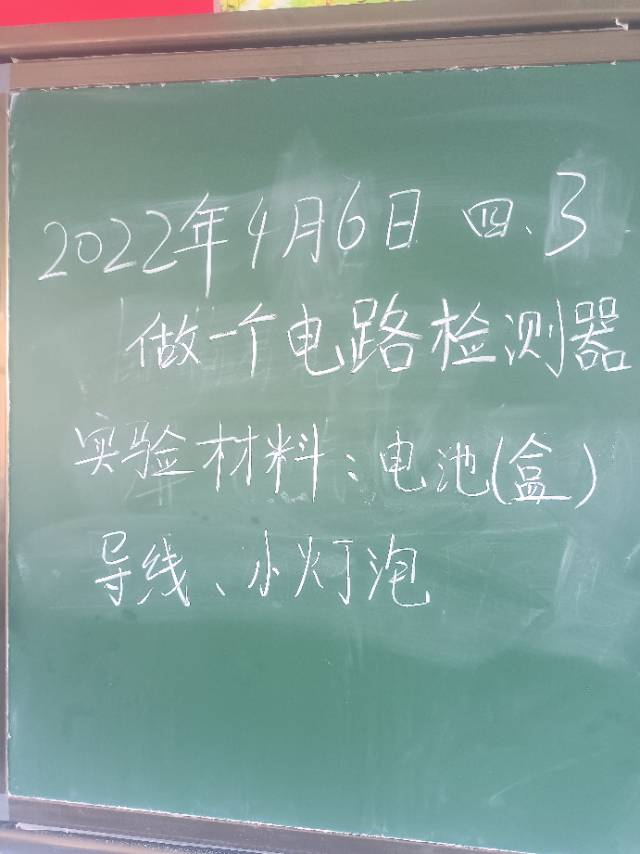 2022年4月6日 四、3
做一个电路检测器
实验材料：电池(盒)
导线、小灯泡